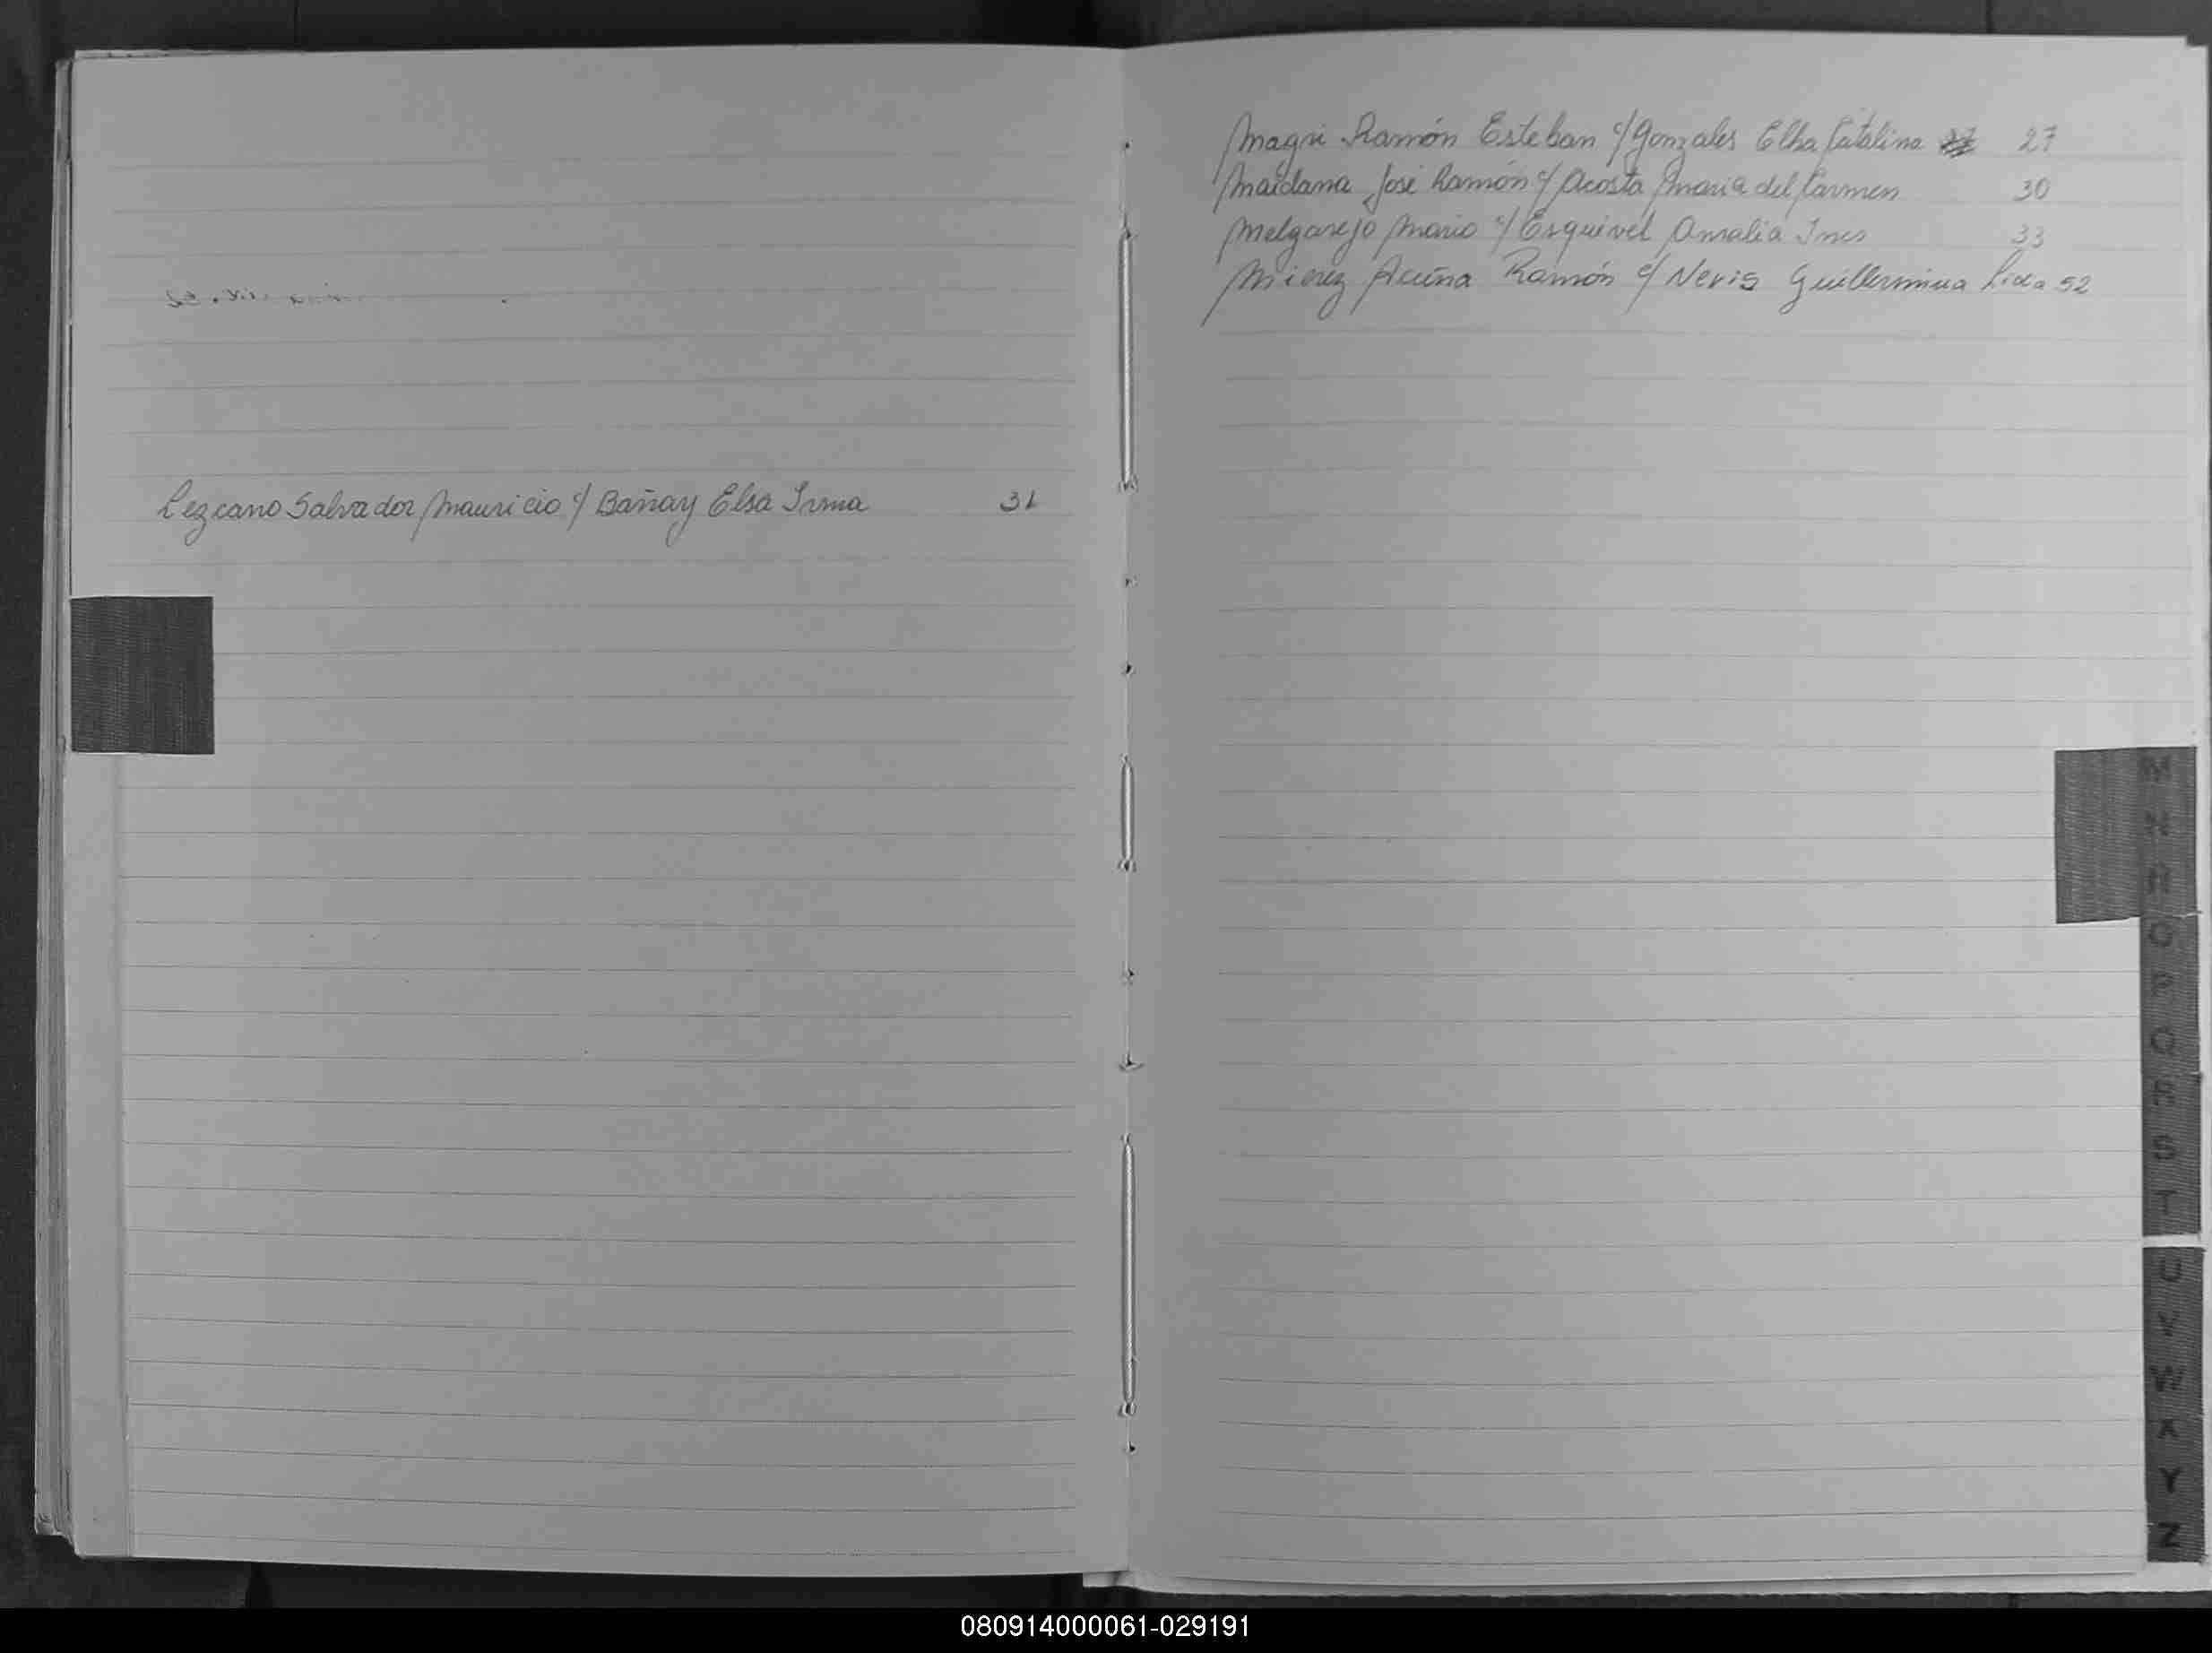 Lezcano Salvador Mauricio c/ Bañay Elsa Irma 31
Magri Ramón Esteban c/ Gonzales Elba Catalina 27
Maidana José Ramón c/ Acosta Maria del Carmen 30
Melgarejo Mario c/ Esquivel Amalia Ines 33
Mierez Acuña Ramón c/ Nevis Guillermina Lida 52
M
N
Ñ
O
P
Q
R
S
T
U
V
W
X
Y
Z
080914000061-029191